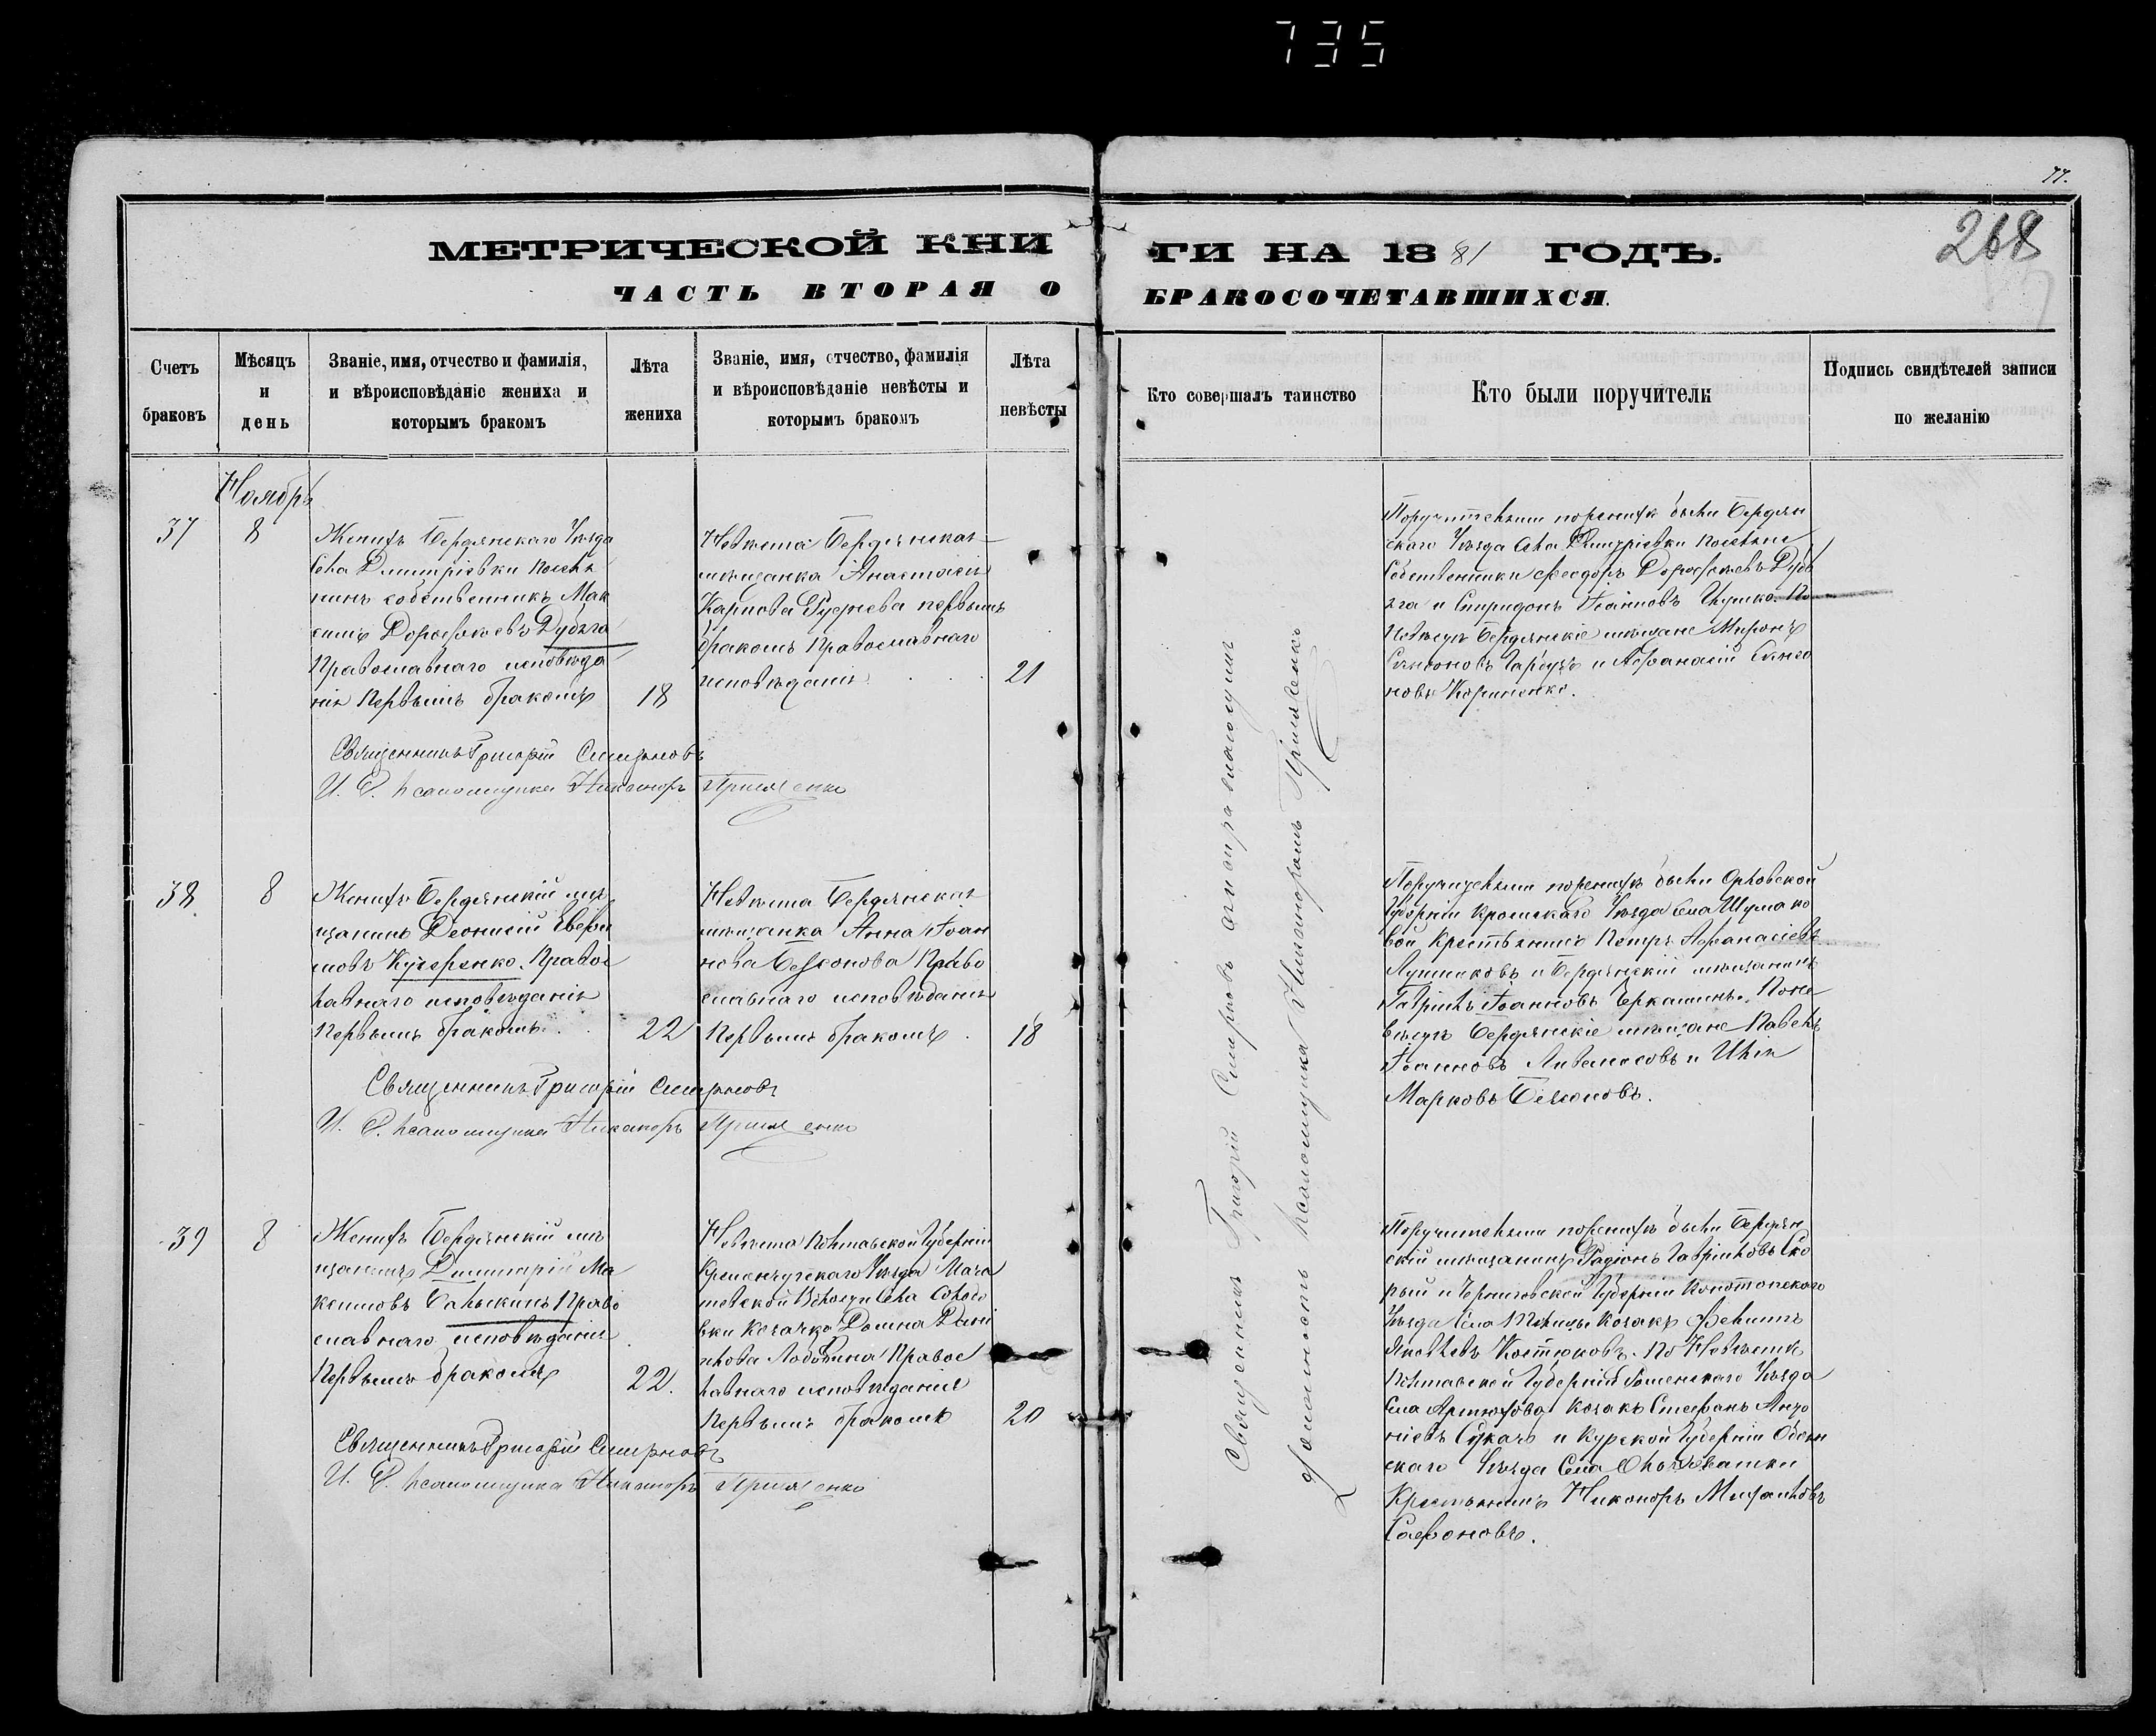 735
77.
268
МЕТРИЧЕСКОЙ КНИ
ГИ НА 1881 ГОДЪ.
ЧАСТЬ ВТОРАЯ О
БРАКОСОЧЕТАВШИХСЯ.
Счетъ браковъ
Мѣсяцъ и день
Званіе, имя, отчество и фамилія, и вѣроисповѣданіе жениха и которымъ бракомъ
Лѣта жениха
Званіе, имя, отчество, фамилія и вѣроисповѣданіе невѣсты и которымъ бракомъ
Лѣта невѣсты
Кто совершалъ таинство
Кто были поручители
Подпись свидѣтелей записи по желанію
Ноябрь
37
8
Женихъ Бердянскаго Уѣзда
Села Дмитріевки Поселя
нинъ собственникъ Мак
симъ Дорофеевъ
Православнаго исповѣда
нія Первымъ бракомъ
18
Невѣста Бердянская
мѣщанка Анастасія
Карпова первымъ
бракомъ Православнаго
исповѣданія
21
Поручителями по женихѣ были Бердян
скаго Уѣзда Села Дмитріевки Поселяне
Собственники Феодоръ Дорофеевъ
и Спиридонъ Іоанновъ По
Невѣстѣ Бердянскіе мѣщане Миронъ
Гарбузъ и Афанасій
Священникъ Григорій Смирновъ
И. Д. псаломщика Никаноръ
38.
8
Женихъ Бердянскій мѣ
щанинъ Діонисій
Кучеренко. Правос
лавнаго исповѣданія
Первымъ бракомъ.
22
Невѣста Бердянская
мѣщанка Анна Іоан
нова Право
славнаго исповѣданія
Первымъ бракомъ
18
Поручителями по женихѣ были Орловской
Губерніи Кромскаго Уѣзда Села Шумако
вой Крестьянинъ Петръ Афанасіевъ
и Бердянскій мѣщанинъ
Гавріилъ Іоанновъ Черкашинъ. По не
вѣстѣ Бердянскіе мѣщане Павелъ
Іоанновъ и Илія
Марковъ
Священникъ Григорій Смирновъ
И. Д. псаломщика Никаноръ
39
8
Женихъ Бердянскій мѣ
щанинъ Димитрій Ма
ксимовъ Право
славнаго исповѣданія
Первымъ бракомъ
22.
Невѣста Полтавской Губерніи
Кременчугскаго Уѣзда
Волости Села
Козачка Домна Дани
лова Правос
лавнаго исповѣданія
Первымъ бракомъ
20
Поручителями по женихѣ были Бердян
скій мѣщанинъ Радіонъ Гавріиловъ Ско
рый и Черниговской Губерніи Конотопскаго
Уѣзда Села Козакъ
Яковлевъ Костюковъ. По Невѣстѣ
Полтавской Губерніи Роменскаго Уѣзда
Села Артюхово Козакъ Стефанъ
Сукачъ и Курской Губерніи
Уѣзда Села
Крестьянинъ Никоноръ Михаиловъ
Сафоновъ.
Священникъ Григорій Смирновъ
И. Д. псаломщика Никаноръ
Священникъ Григорій Смирновъ
должность псаломщика Никаноромъ